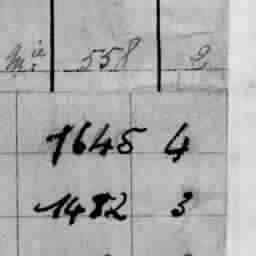 Mie: 558 2
1645 4
1482 3